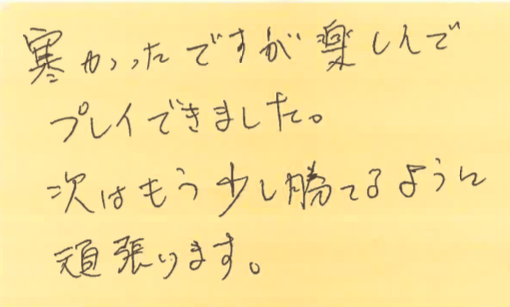 寒かったですが楽しんで
プレイできました。
次はもう少し勝てるように
頑張ります。